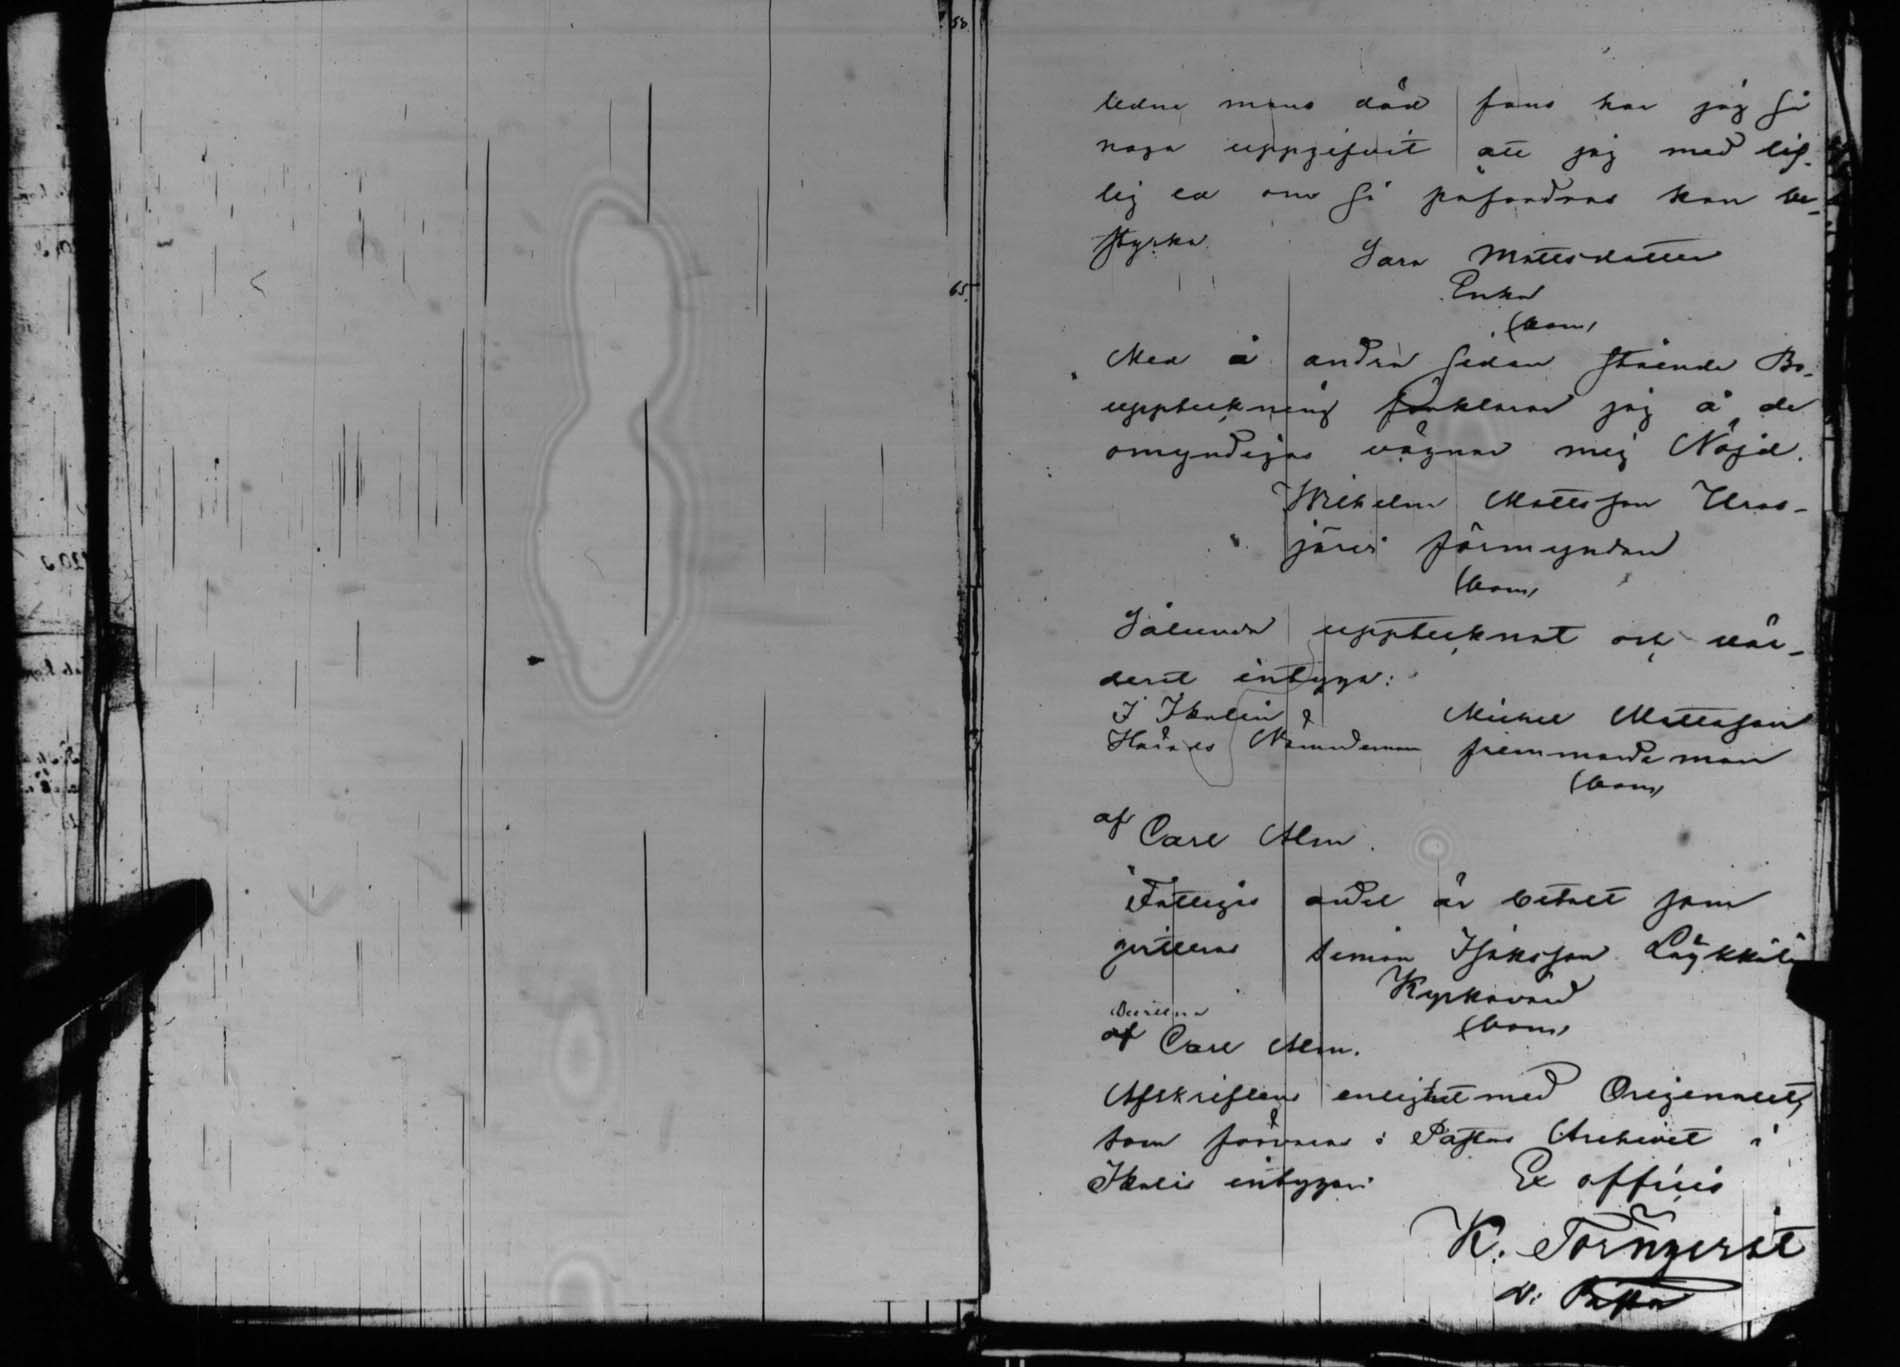 58.
65.
ledne mans död fans har jag så
noga uppgifvit att jag med lif-
lig ed om så påfordras kan be-
styrka.
Sara Mattsdotter
Enka
(bom)
Med å andra sedan stående Bo-
uppteckning förklarar jag å de
omyndigas vägnar mig Nöjd.
Wilhelm Mattsson Uras-
järvi förmyndare
(bom)
Sålunda upptecknat och vär-
derat intyga:
J Ikalin
Härads Nämndeman
Michel Mattsson
fremmande man
(bom)
af Carl Alm.
Fattiges andel är betalt som
qvitteras Simon Isaksson
Kyrkovärd
(bom)
af Carl Alm.
Afskriftens enlighet med Originalet,
som förvaras i Pastors Archivet i
Ikalis intygar:
Ex officio
K. Törnqvist
v: Pastor